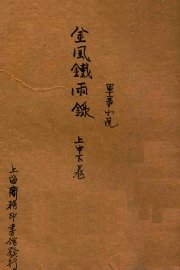 軍事小說
金風鐵雨錄
上中下卷
上海商務印書館發行